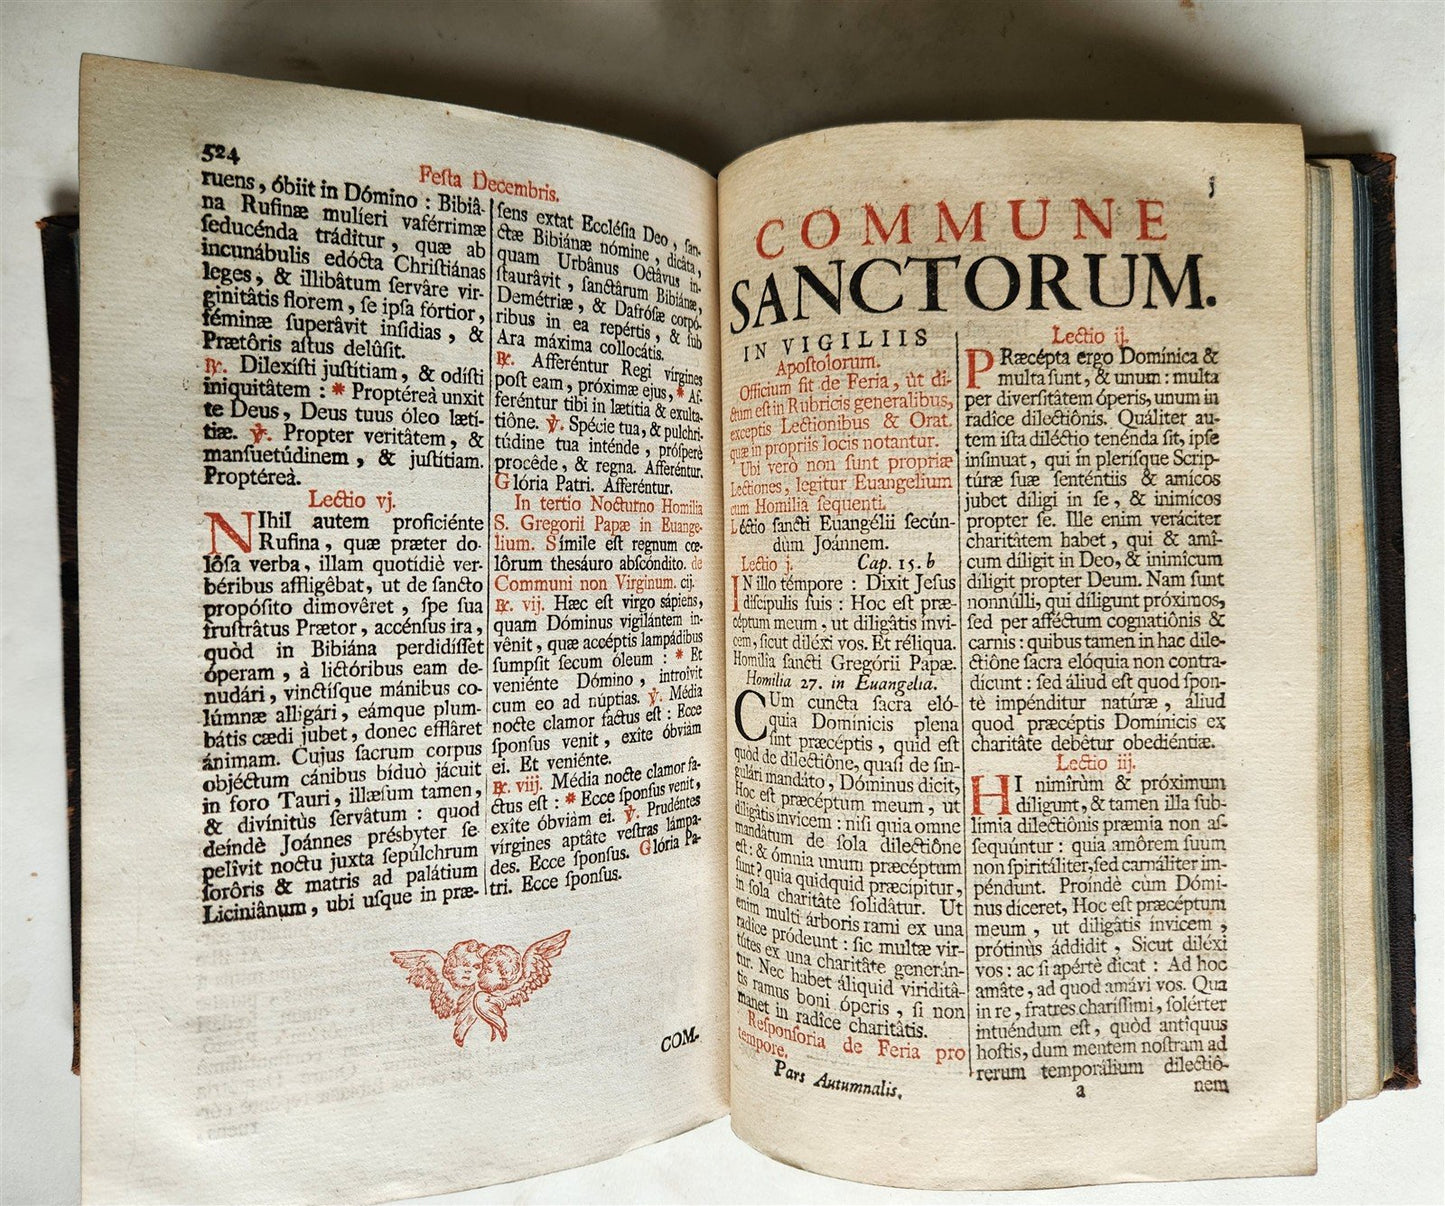 524
Feſta Decembris.
ruens, óbiit in Dómino : Bibiâ-
na Rufinæ mulíeri vaférrimæ
ſeducénda tráditur, quæ ab
incunábulis edócta Chriſtiánas
leges, & illibâtum ſervâre vir-
ginitâtis florem, ſe ipſa fórtior,
féminæ ſuperâvit inſidias, &
Prætôris aſtus delûſit.
℟. Dilexíſti juſtítiam, & odíſti
iniquitâtem : * Proptéreà unxit
te Deus, Deus tuus óleo lætí-
tiæ. ℣. Propter veritâtem, &
manſuetúdinem, & juſtítiam.
Proptéreà.
Lectio vj.
NIhil autem proficiénte
Rufina, quæ præter do-
lôſa verba, illam quotídiè ver-
béribus affligêbat, ut de ſancto
propóſito dimovêret, ſpe ſua
fruſtrâtus Prætor, accénſus ira,
quòd in Bibiána perdidíſſet
óperam, à lictóribus eam de-
nudári, vinctíſque mánibus co-
lúmnæ alligári, eámque plum-
bátis cædi jubet, donec efflâret
ánimam. Cujus ſacrum corpus
objéctum cánibus bíduò jácuit
in foro Tauri, illæſum tamen,
& divínitùs ſervâtum : quod
deíndè Joánnes présbyter ſe-
pelîvit noctu juxta ſepúlchrum
ſorôris & matris ad palátium
Liciniânum, ubi uſque in præ-
ſens extat Eccléſia Deo, ſan-
ctæ Bibiánæ nómine, dicâta,
quam Urbânus Octâvus in-
ſtaurâvit, ſanctârum Bibiánæ,
Demétriæ, & Dafróſæ corpó-
ribus in ea repértis, & ſub
Ara máxima collocátis.
℟. Afferéntur Regi vírgines
poſt eam, próximæ ejus, * Af-
feréntur tibi in lætítia & exulta-
tiône. ℣. Spécie tua, & pulchri-
túdine tua inténde, próſperè
procêde, & regna. Afferéntur.
Glória Patri. Afferéntur.
In tertio Nocturno Homilia
S. Gregorii Papæ in Euange-
lium. Símile eſt regnum cœ-
lôrum theſáuro abſcóndito. de
Communi non Virginum. cij.
℟. vij. Hæc eſt virgo sápiens,
quam Dóminus vigilántem in-
vênit, quæ accéptis lampádibus
ſumpſit ſecum óleum : * Et
veniénte Dómino, introîvit
cum eo ad núptias. ℣. Média
nocte clamor factus eſt : Ecce
ſponſus venit, exite óbviàm
ei. Et veniénte.
℟. viij. Média nocte clamor fa-
ctus eſt : * Ecce ſponſus venit,
exite óbviàm ei. ℣. Prudéntes
vírgines aptâte veſtras lámpa-
des. Ecce ſponſus. Glória Pa-
tri. Ecce ſponſus.
COM-
j
COMMUNE
SANCTORUM.
IN VIGILIIS
Apoſtolorum.
Officium fit de Feria, ùt di-
ctum eſt in Rubricis generalibus,
exceptis Lectionibus & Orat.
quæ in propriis locis notantur.
Ubi verò non ſunt propriæ
Lectiones, legitur Euangelium
cum Homilia ſequenti.
Léctio ſancti Euangélii ſecún-
dùm Joánnem.
Lectio j. Cap. 15. b
IN illo témpore : Dixit Jeſus
diſcipulis ſuis : Hoc eſt præ-
céptum meum, ut diligâtis ínvi-
cem, ſicut diléxi vos. Et réliqua.
Homilía ſancti Gregórii Papæ.
Homilia 27. in Euangelia.
CUm cuncta ſacra eló-
quia Domínicis plena
ſint præcéptis, quid eſt
quòd de dilectiône, quaſi de ſin-
gulári mandáto, Dóminus dicit,
Hoc eſt præcéptum meum, ut
diligâtis ínvicem : niſi quia omne
mandâtum de ſola dilectiône
eſt : & ómnia unum præcéptum
ſunt? quia quidquid præcipitur,
in ſola charitâte ſolidâtur. Ut
enim multi árboris rami ex una
radîce pródeunt : ſic multæ vir-
tútes ex una charitâte generán-
tur. Nec habet áliquid viriditâ-
tis ramus boni óperis, ſi non
manet in radîce charitâtis.
Reſponſoria de Feria pro
tempore.
Pars Autumnalis.
Lectio ij.
PRæcépta ergo Domínica &
multa ſunt, & unum : multa
per diverſitâtem óperis, unum in
radîce dilectiônis. Quáliter au-
tem iſta diléctio tenénda ſit, ipſe
inſinuat, qui in pleríſque Scrip-
túræ ſuæ ſenténtiis & amícos
jubet diligi in ſe, & inimícos
propter ſe. Ille enim veráciter
charitâtem habet, qui & amî-
cum díligit in Deo, & inimîcum
díligit propter Deum. Nam ſunt
nonnúlli, qui díligunt próximos,
ſed per afféctum cognatiônis &
carnis : quibus tamen in hac dile-
ctiône ſacra elóquia non contra-
dícunt : ſed áliud eſt quod ſpon-
tè impénditur natúræ, áliud
quod præcéptis Domínicis ex
charitâte debêtur obediéntiæ.
Lectio iij.
HI nimîrùm & próximum
díligunt, & tamen illa ſub-
límia dilectiônis præmia non aſ-
ſequúntur : quia amôrem ſuum
non ſpirituáliter, ſed carnáliter im-
péndunt. Proíndè cùm Dómi-
nus díceret, Hoc eſt præcéptum
meum, ut diligâtis ínvicem,
prótinùs áddidit, Sicut diléxi
vos : ac ſi apértè dicat : Ad hoc
amâte, ad quod amávi vos. Qua
in re, fratres chariſſimi, ſolérter
intuéndum eſt, quòd antîquus
hoſtis, dum mentem noſtram ad
rerum temporálium dilectiô-
a nem